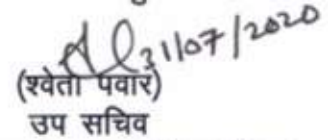 31/07/2020
(श्वेता पवार)
उप सचिव